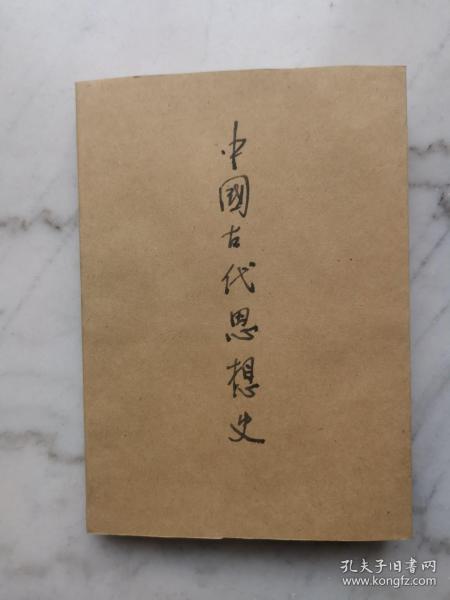 中國古代思想史
孔夫子旧书网
www.kongfz.com